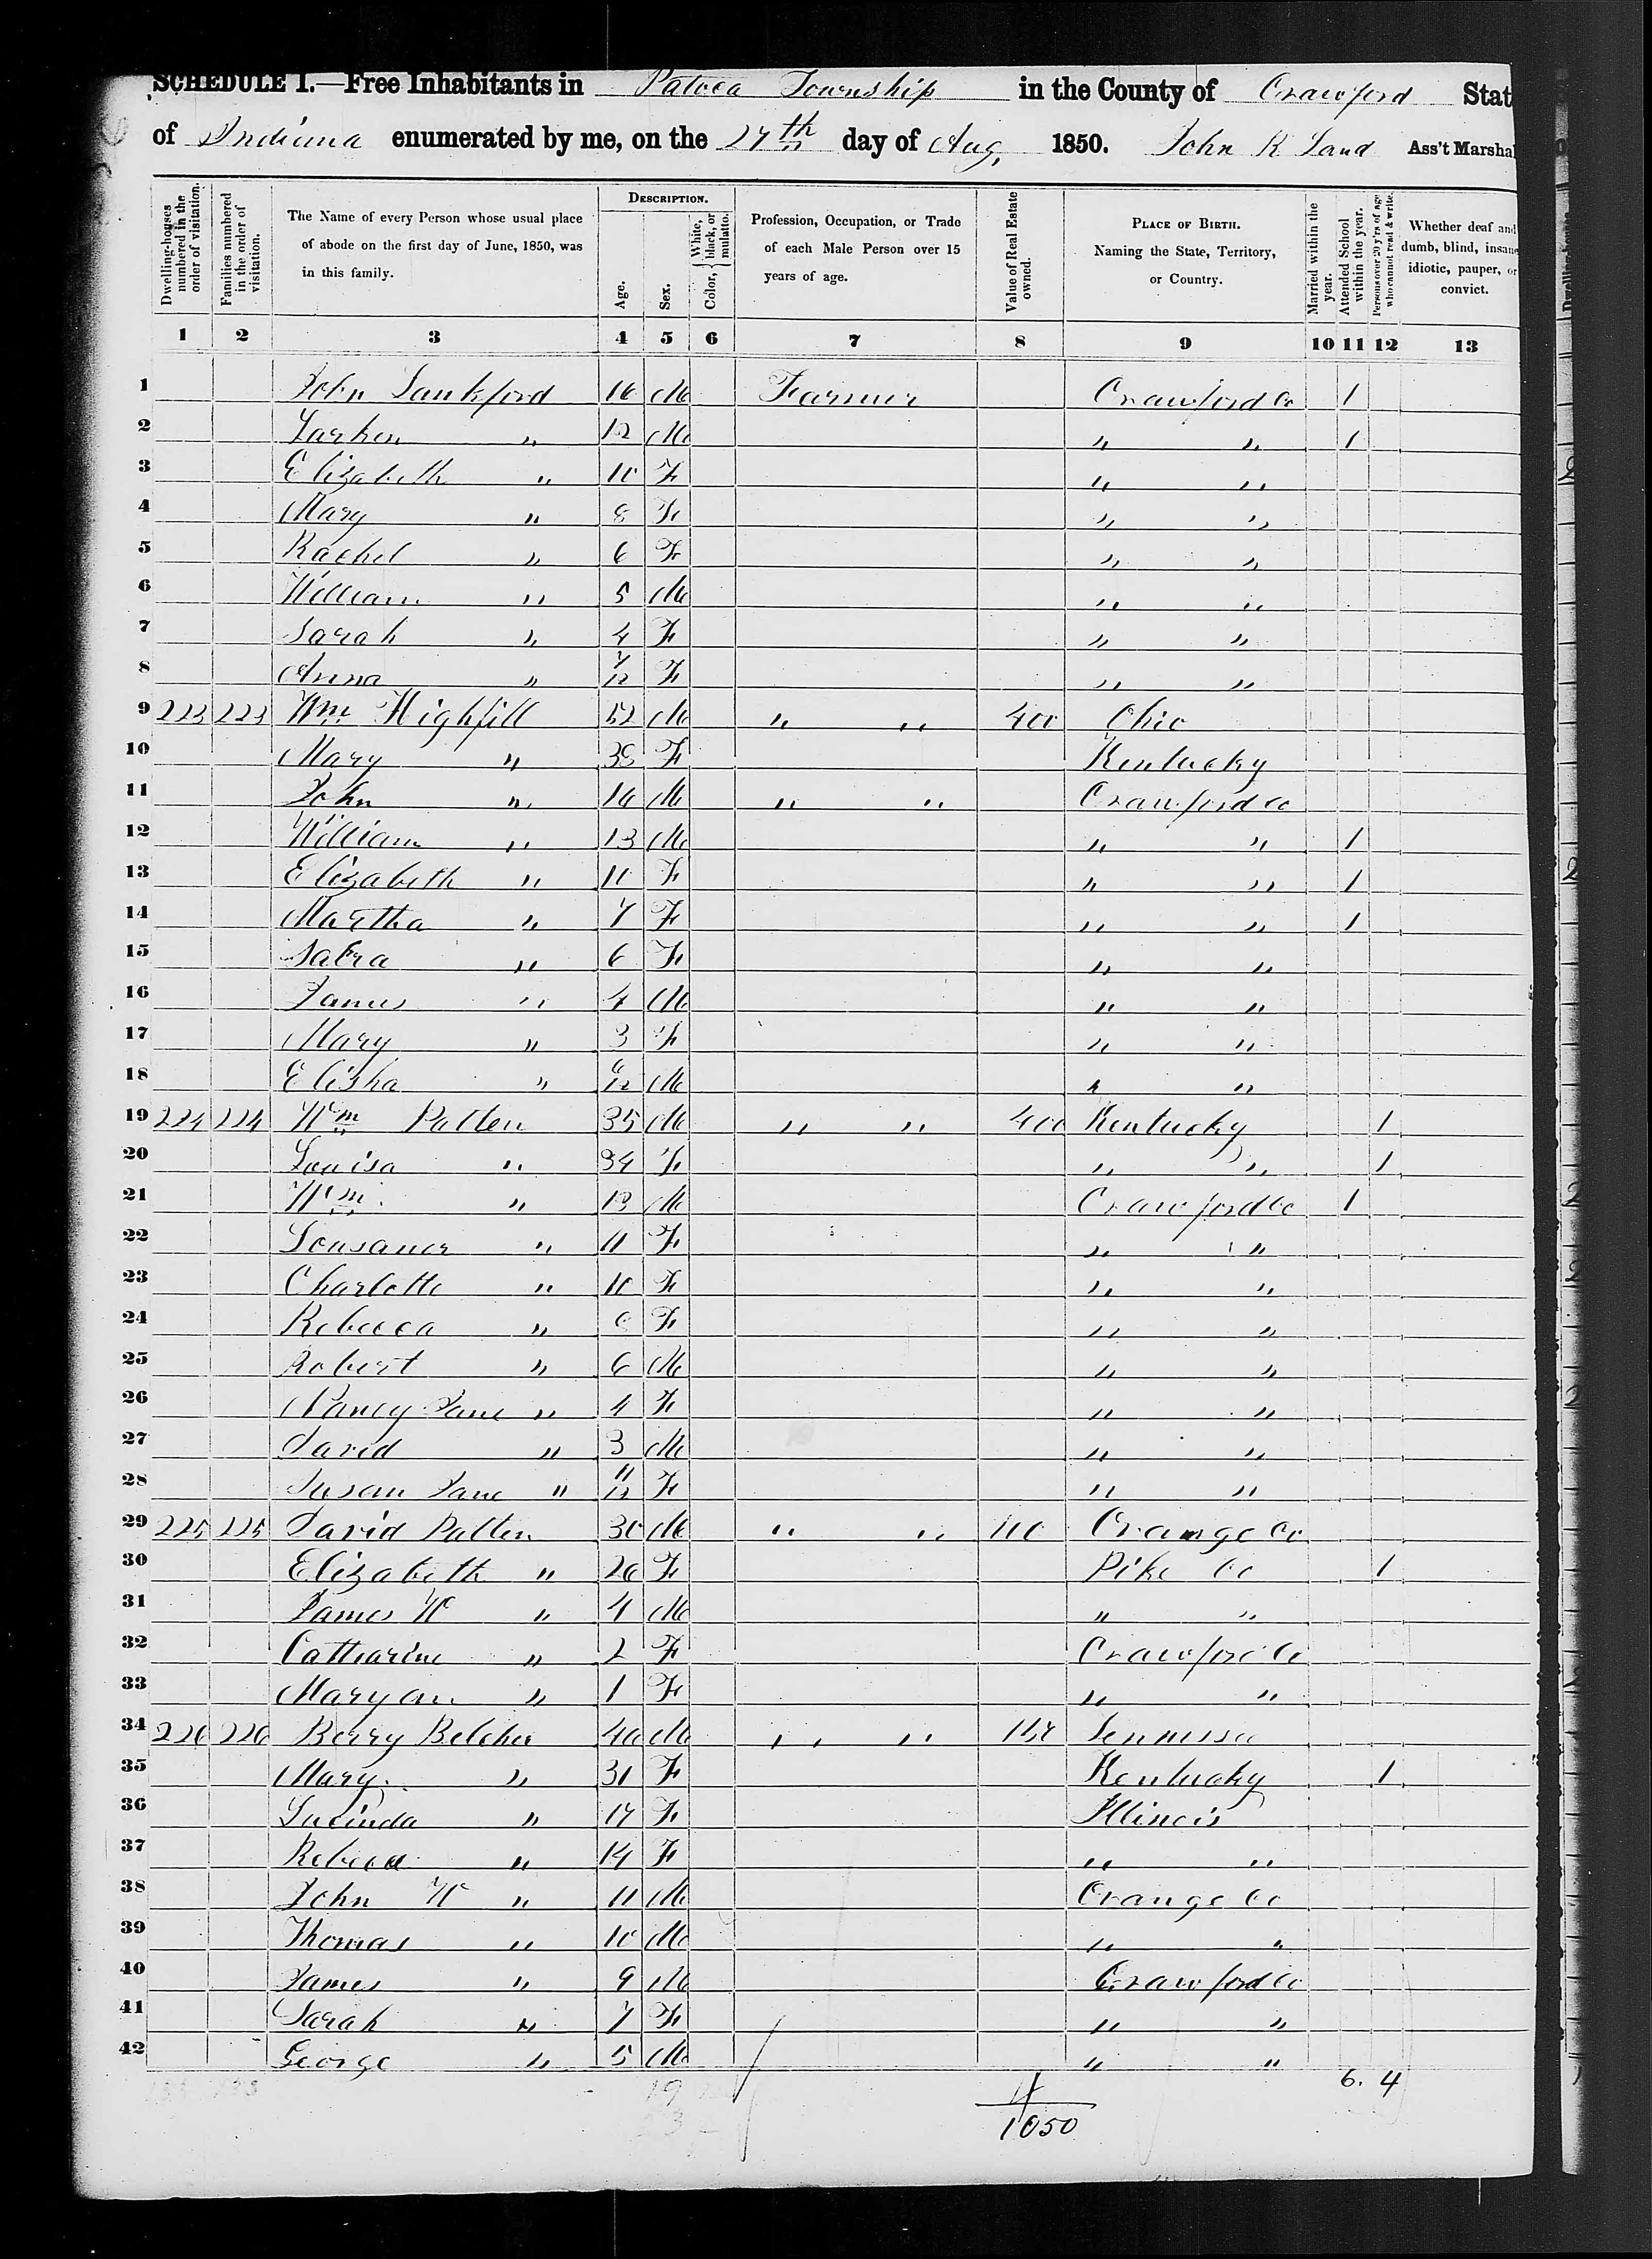 SCHEDULE I.—Free Inhabitants in Patoca Township in the County of Crawford Stat
of Indiana enumerated by me, on the 27th day of Aug, 1850. John R Land Ass't Marshal
Dwelling-houses numbered in the order of visitation. Families numbered in the order of visitation. The Name of every Person whose usual place of abode on the first day of June, 1850, was in this family. DESCRIPTION. Age. Sex. Color, { White, black, or mulatto. Profession, Occupation, or Trade of each Male Person over 15 years of age. Value of Real Estate owned. PLACE OF BIRTH. Naming the State, Territory, or Country. Married within the year. Attended School within the year. Persons over 20 y'rs of age who cannot read & write. Whether deaf and dumb, blind, insane, idiotic, pauper, or convict.
1 2 3 4 5 6 7 8 9 10 11 12 13
1 John Lankford 16 M Farmer Crawford Co 1
2 Larken " 12 M " " 1
3 Elizabeth " 10 F " "
4 Mary " 8 F " "
5 Rachel " 6 F " "
6 William " 5 M " "
7 Sarah " 4 F " "
8 Anna " 7/12 F " "
9 223 223 Wm Highfill 52 M " " 400 Ohio
10 Mary " 38 F Kentucky
11 John " 16 M " " Crawford Co
12 William " 13 M " " 1
13 Elizabeth " 10 F " " 1
14 Martha " 7 F " " 1
15 Sabra " 6 F " "
16 James " 4 M " "
17 Mary " 3 F " "
18 Elisha " 6/12 M " "
19 224 224 Wm Patten 35 M " " 400 Kentucky 1
20 Louisa " 34 F " " 1
21 Wm " 13 M Crawford Co 1
22 Lousaner " 11 F " "
23 Charlotte " 10 F " "
24 Rebecca " 8 F " "
25 Robert " 6 M " "
26 Nancy Jane " 4 F " "
27 David " 3 M " "
28 Susan Jane " 11/12 F " "
29 225 225 David Patten 30 M " " 100 Orange Co
30 Elizabeth " 26 F Pike Co 1
31 James W " 4 M " "
32 Catharine " 2 F Crawford Co
33 Maryan " 1 F " "
34 226 226 Berry Belcher 40 M " " 150 Tennessee
35 Mary " 31 F Kentucky 1
36 Lucinda " 17 F Illinois
37 Rebecca " 14 F " "
38 John W " 11 M Orange Co
39 Thomas " 10 M " "
40 James " 9 M Crawford Co
41 Sarah " 7 F " "
42 George " 5 M " "
6. 4
19
23
1050